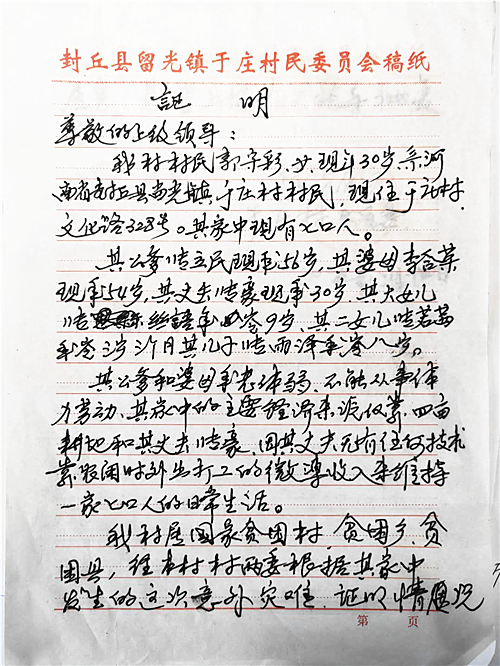 封丘县留光镇于庄村民委员会稿纸
证 明
尊敬的上级领导：
我村村民郭守彩，女，现年30岁，系河
南省封丘县留光镇于庄村村民，现住于庄村
文化路328号。其家中现有七口人。
其公爹陆立民现年56岁，其婆母李合荣
现年54岁，其丈夫陆豪现年30岁，其大女儿
年令9岁，其二女儿陆若茜
年令3岁 个月其儿子陆雨泽年令八岁。
其公爹和婆母年老体弱，不能从事体
力劳动，其家中的主要经济来源仅靠四亩
耕地和其丈夫陆豪，因其丈夫无有任何技术
靠农闲时外出打工的微薄收入来维持
一家七口人的日常生活。
我村居国家贫困村，贫困乡，贫
困县，经本村村两委根据其家中
发生的这次意外灾难，证明情况
第 页